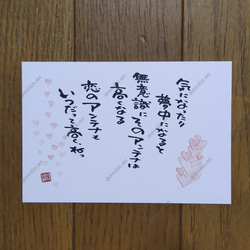 気になったり
夢中になると
無意識にそのアンテナは
高くなる
恋のアンテナも
いつだって高くねっ